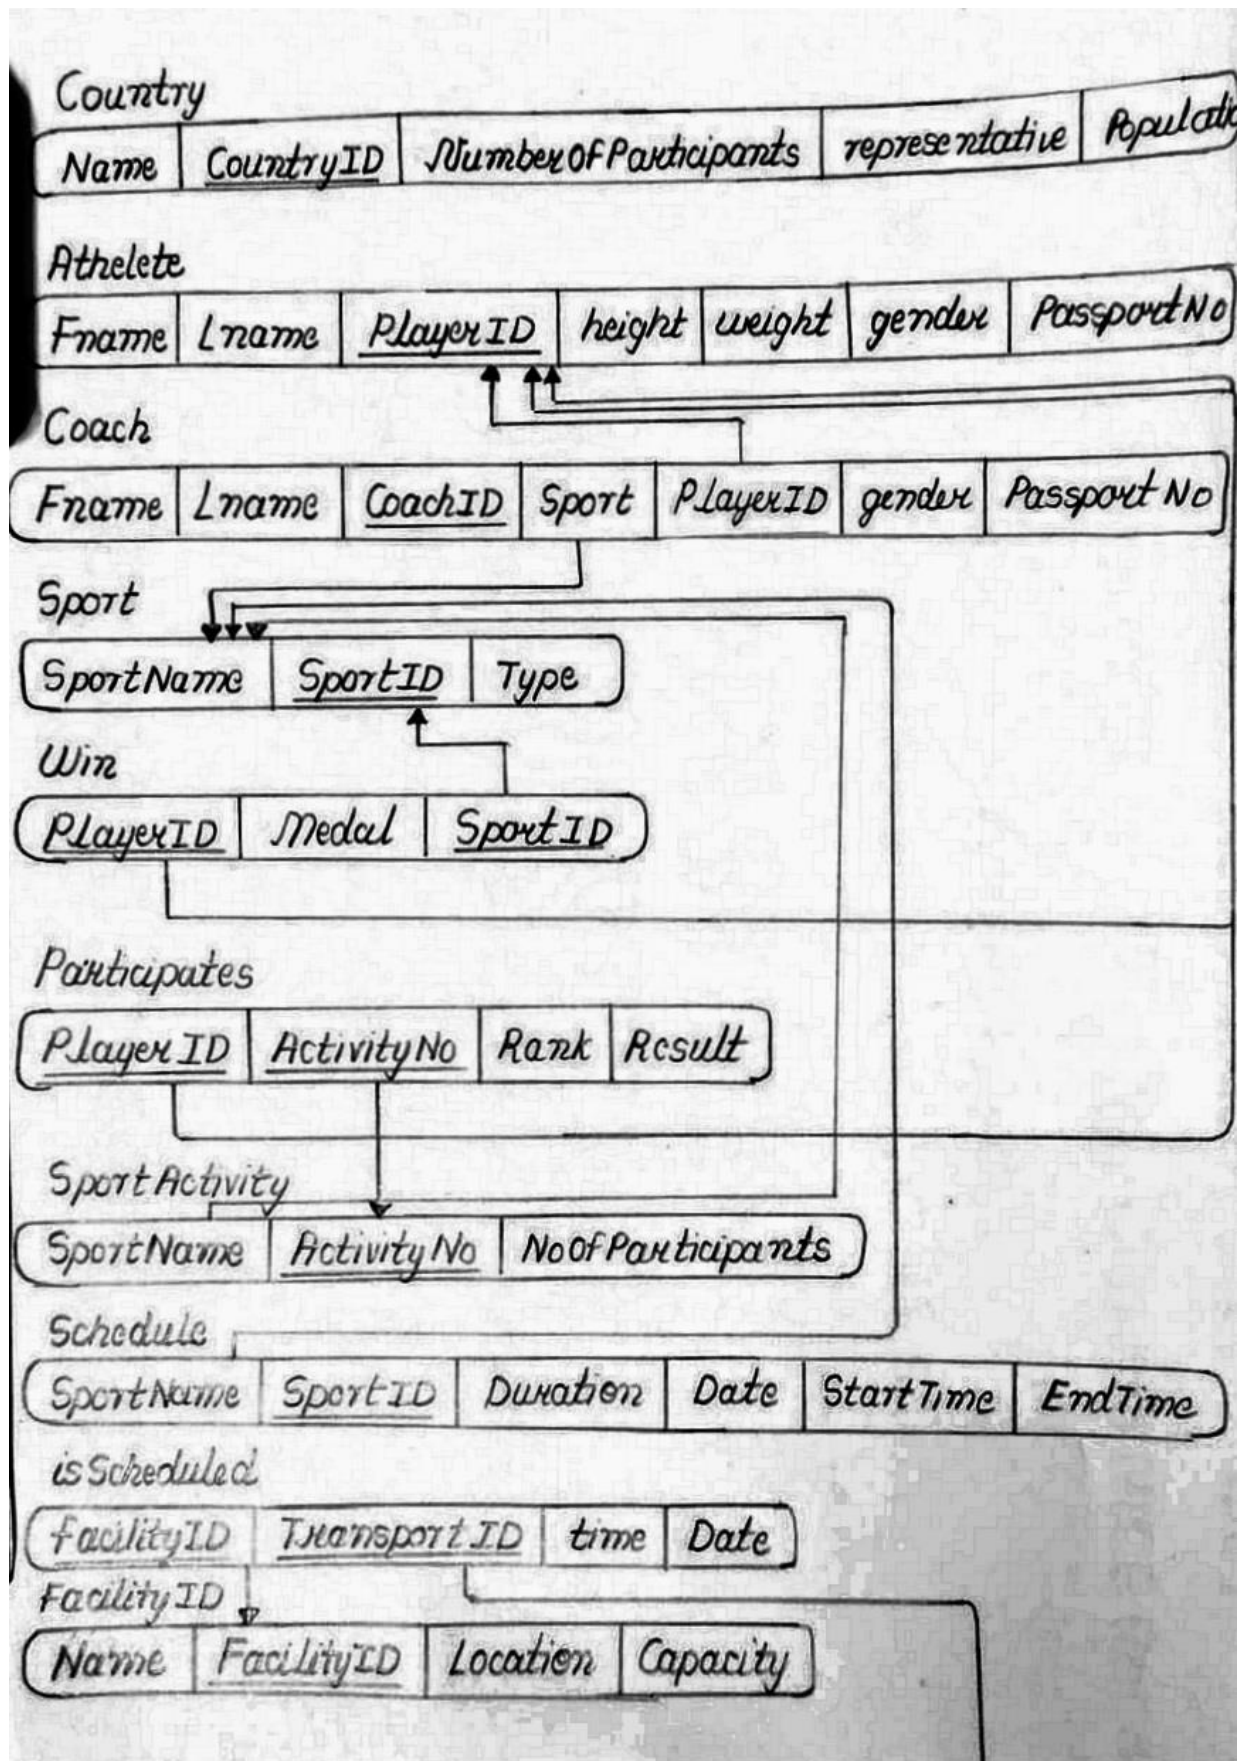 Country
Name CountryID NumberOfParticipants representative
Athelete
Fname Lname PlayerID height weight gender PassportNo
Coach
Fname Lname CoachID Sport PlayerID gender PassportNo
Sport
SportName SportID Type
Win
PlayerID Medal SportID
Participates
PlayerID ActivityNo Rank Result
SportActivity
SportName ActivityNo NoOfParticipants
Schedule
SportName SportID Duration Date StartTime EndTime
isScheduled
facilityID TransportID time Date
FacilityID
Name FacilityID Location Capacity